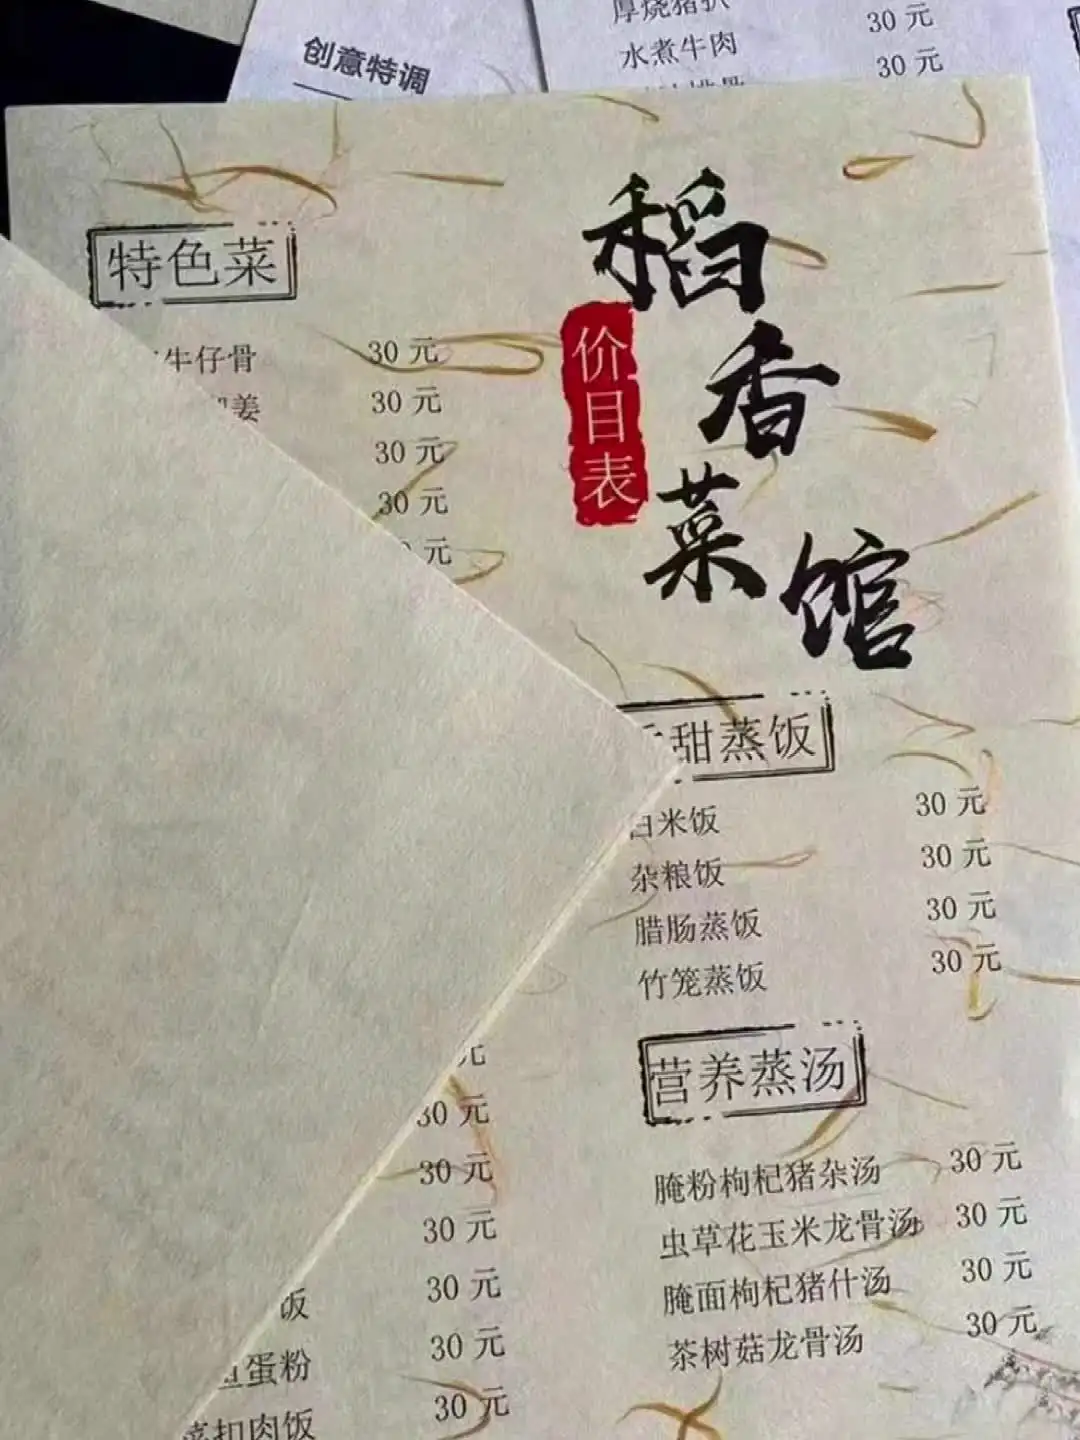 水煮牛肉
30 元
30 元
创意特调
稻香菜馆
价目表
特色菜
牛仔骨 30 元
姜 30 元
30 元
30 元
元
甜蒸饭
白米饭 30 元
杂粮饭 30 元
腊肠蒸饭 30 元
竹笼蒸饭 30 元
营养蒸汤
腌粉枸杞猪杂汤 30 元
虫草花玉米龙骨汤 30 元
腌面枸杞猪什汤 30 元
茶树菇龙骨汤 30 元
元
30 元
30 元
30 元
饭 30 元
蛋粉 30 元
扣肉饭 30 元